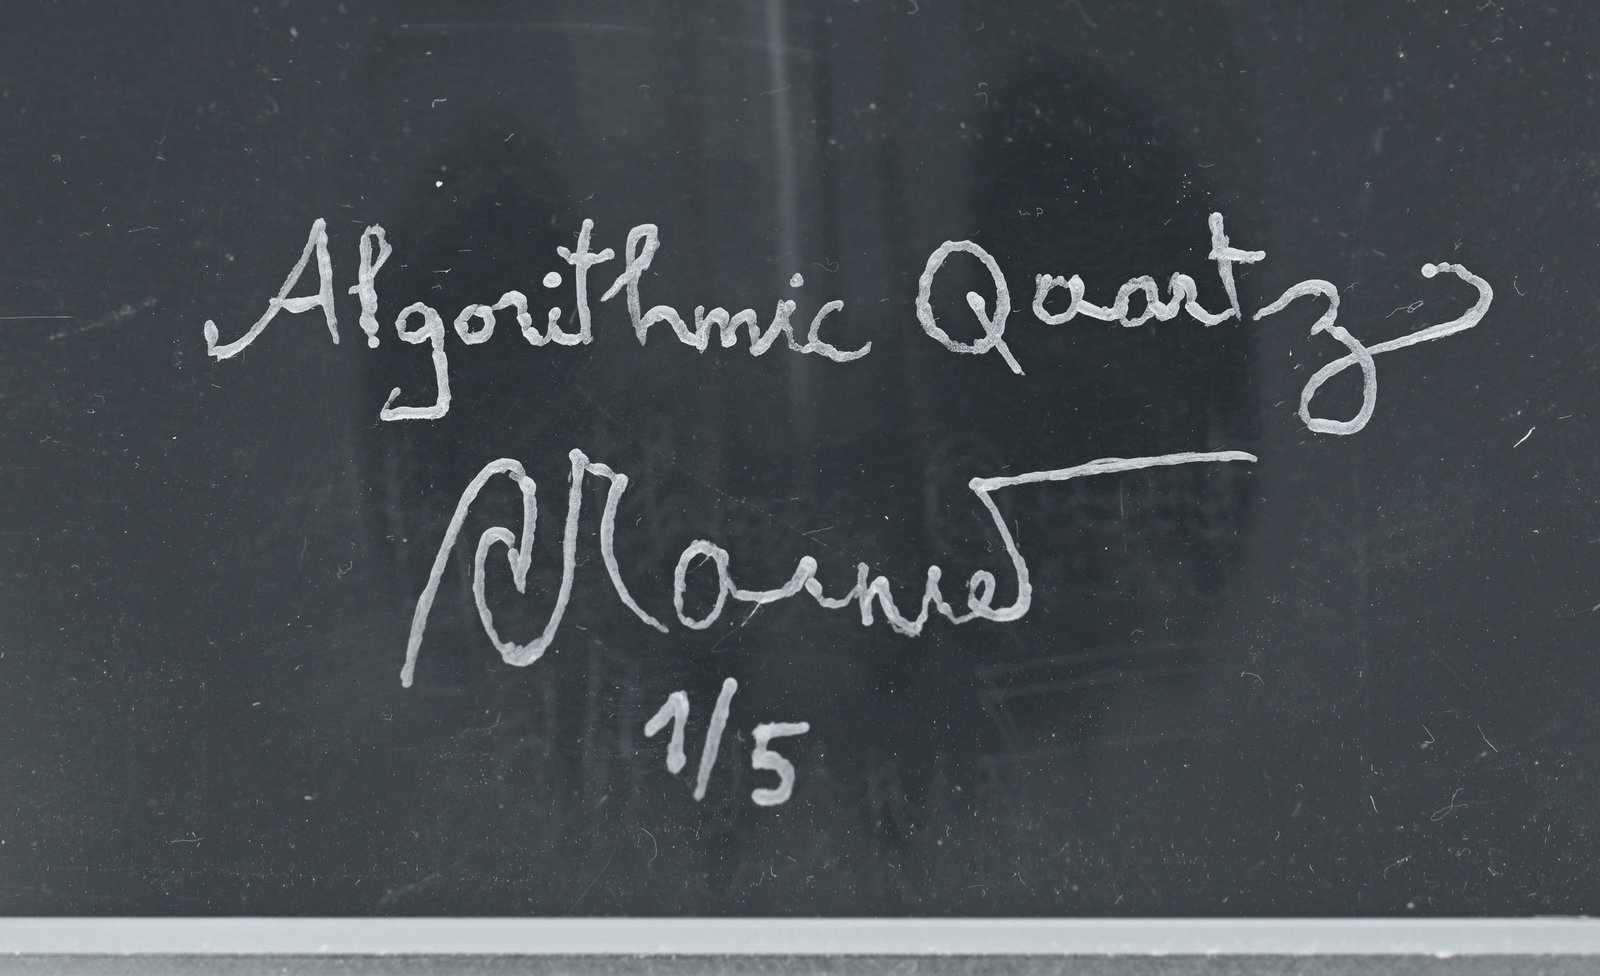 Algorithmic Quartz
1/5